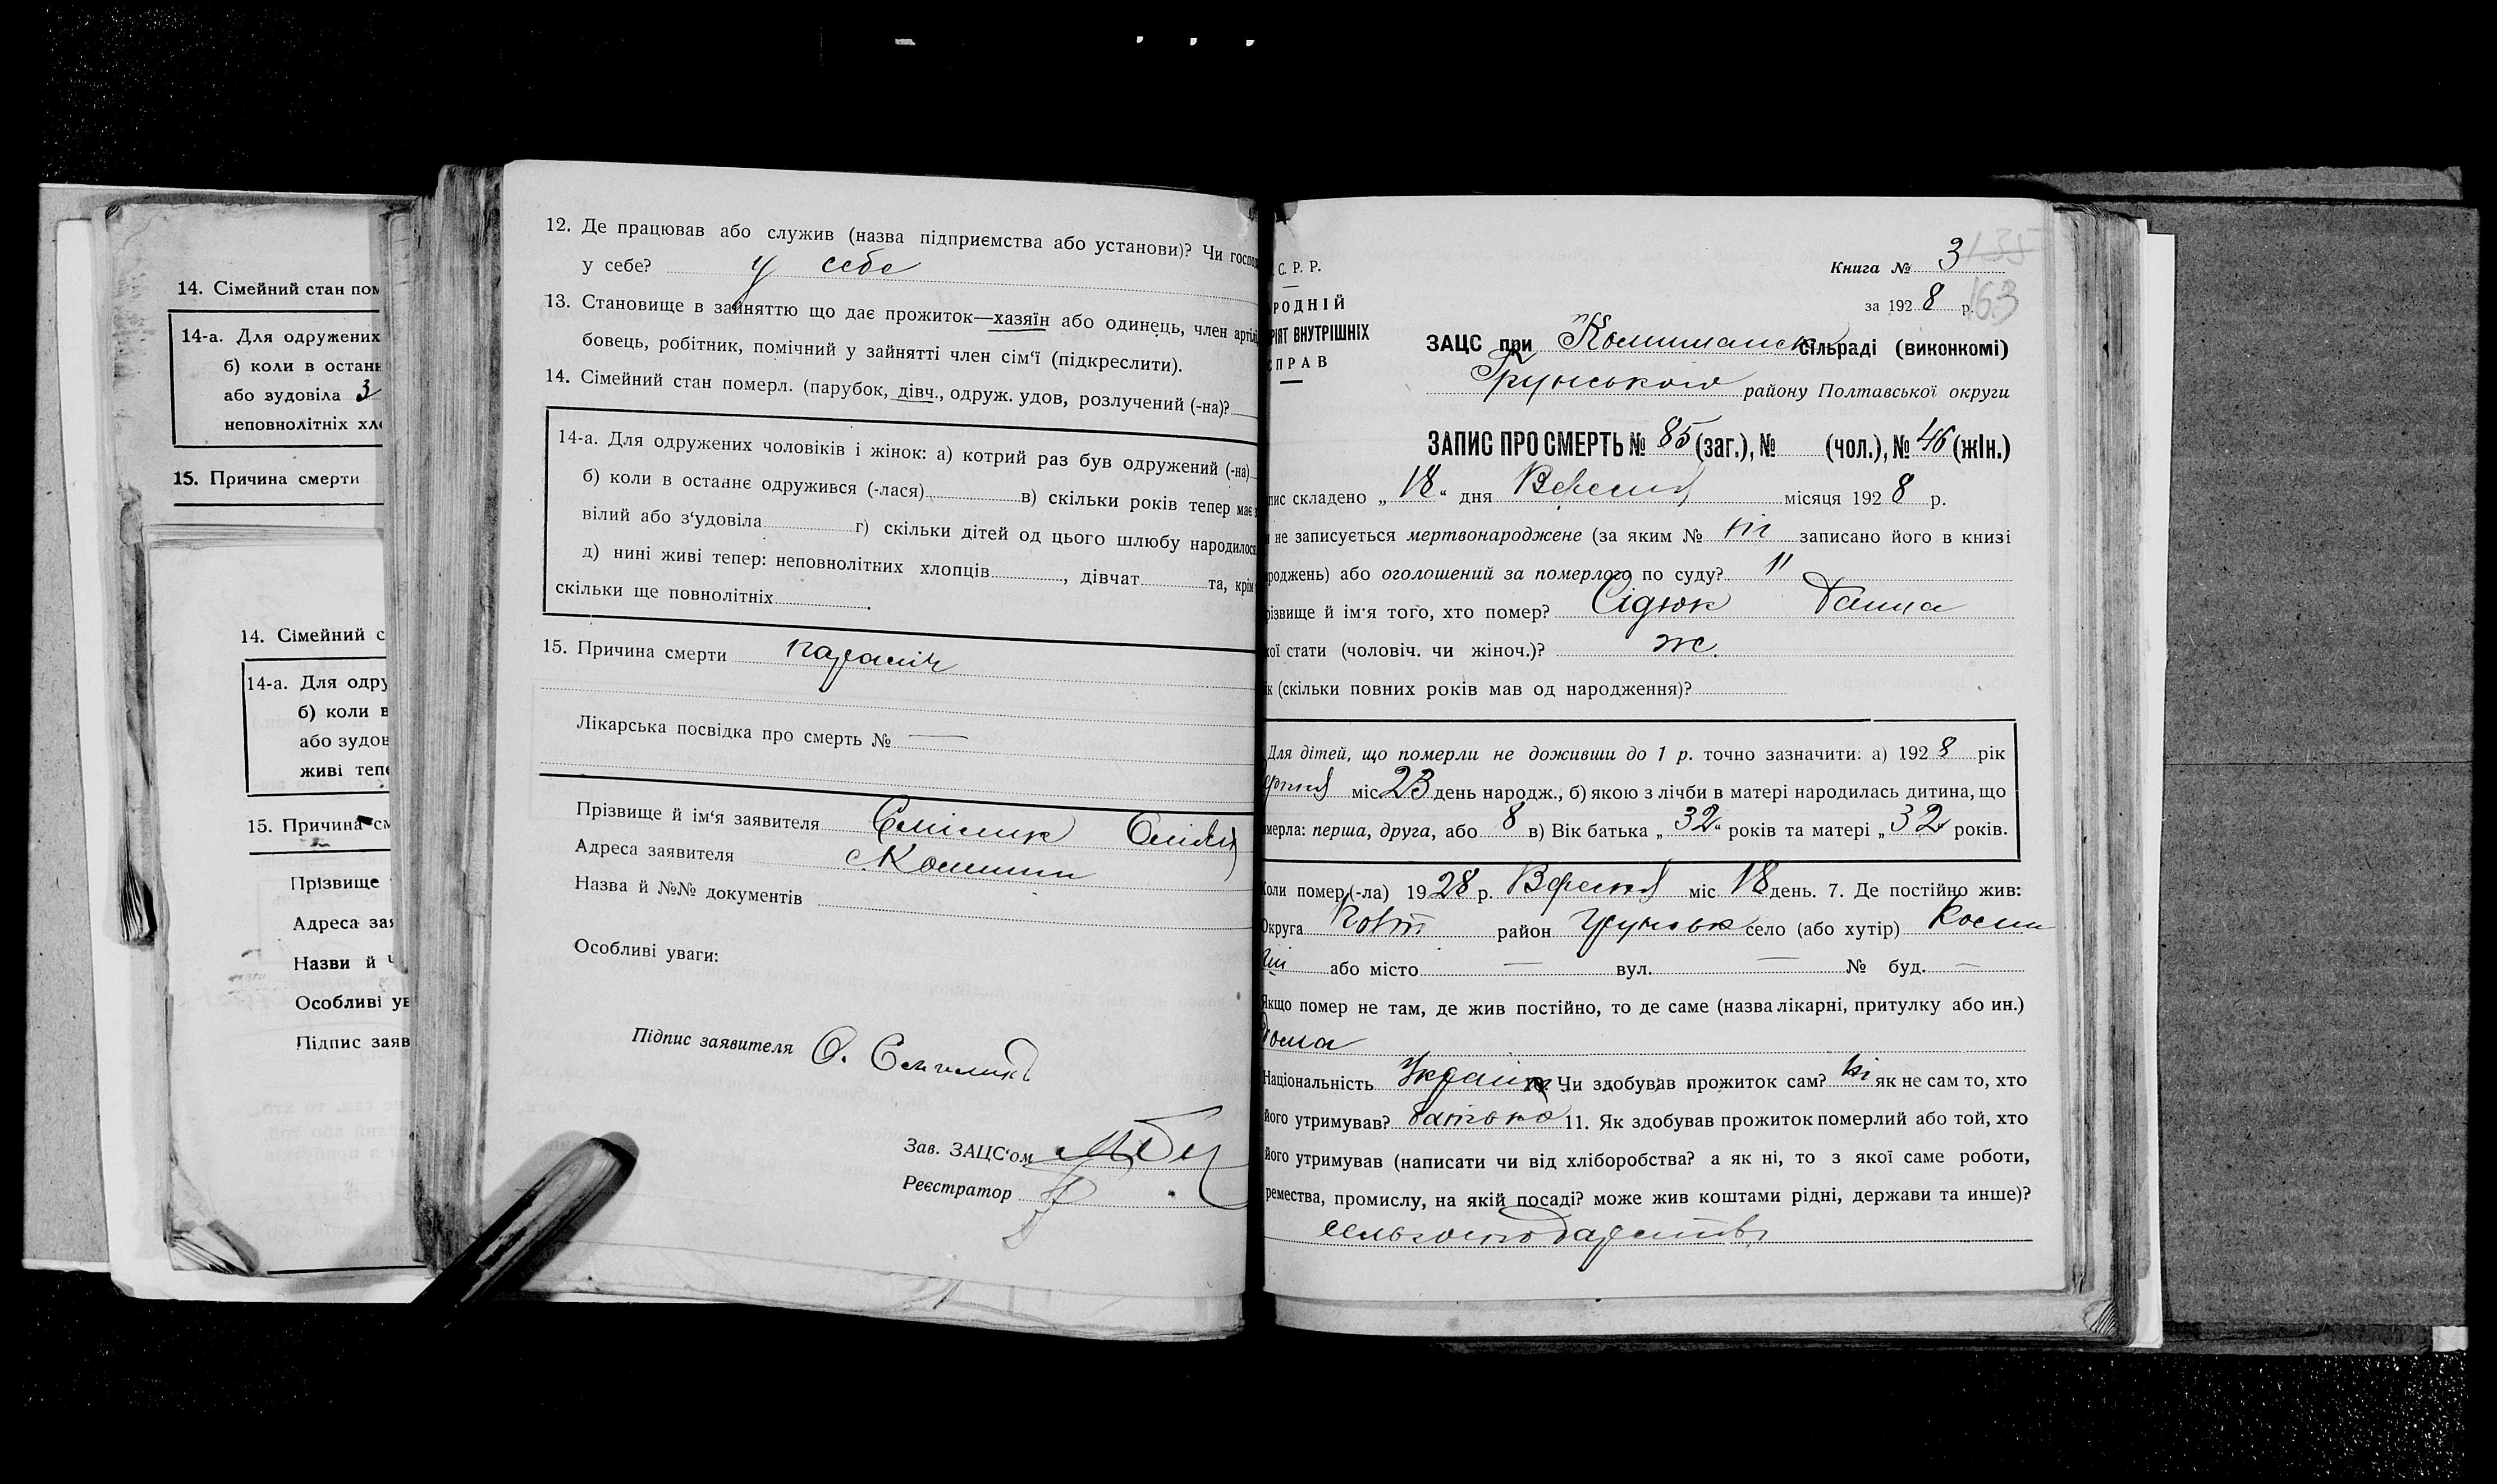 14. Сімейний стан пом
14-а. Для одружених
б) коли в останн
або зудовіла 3
неповнолітніх хло
15. Причина смерти
14. Сімейний с
14-а. Для одру
б) коли в
або зудов
живі тепе
15. Причина см
Прізвище
Адреса зая
Назви й
Особливі ув
Підпис заяв
12. Де працював або служив (назва підприємства або установи)? Чи господ
у себе? у себе
13. Становище в зайняттю що дає прожиток—хазяїн або одинець, член артілі
бовець, робітник, помічний у зайнятті член сім‘ї (підкреслити).
14. Сімейний стан померл. (парубок, дівч., одруж. удов, розлучений (-на)?
14-а. Для одружених чоловіків і жінок: а) котрий раз був одружений (-на)
б) коли в останнє одружився (-лася) в) скільки років тепер має з
вілий або з‘удовіла г) скільки дітей од цього шлюбу народилося
д) нині живі тепер: неповнолітних хлопців , дівчат та, крім
скільки ще повнолітніх .
15. Причина смерти
Лікарська посвідка про смерть № —
Прізвище й ім‘я заявителя
Адреса заявителя с. Комиші
Назва й №№ документів
Особливі уваги:
Підпис заявителя О.
Зав. ЗАЦС‘ом
Реєстратор
С. Р. Р.
РОДНІЙ
РІЯТ ВНУТРІШНІХ
СПРАВ
Книга № 3 135
за 1928 р. 163
ЗАЦС при Комишанськ сільраді (виконкомі)
Грунського району Полтавської округи
ЗАПИС ПРО СМЕРТЬ № 85 (заг.), № (чол.), № 46 (жін.)
пис складено „18“ дня Вересня місяця 1928 р.
не записується мертвонароджене (за яким № ні записано його в книзі
роджень) або оголошений за померлого по суду? "
різвище й ім‘я того, хто помер? Сідюк Ганна
кої стати (чоловіч. чи жіноч.)? ж.
ік (скільки повних років мав од народження)?
Для дітей, що померли не доживши до 1 р. точно зазначити: а) 1928 рік
ерпня міс 23 день народж., б) якою з лічби в матері народилась дитина, що
мерла: перша, друга, або 8 в) Вік батька „32“ років та матері „32“ років.
Коли помер (-ла) 1928 р. Вересня міс 18 день. 7. Де постійно жив:
Округа Полт район Грунськ село (або хутір) Коми
ші або місто — вул. — № буд. —
Якщо помер не там, де жив постійно, то де саме (назва лікарні, притулку або ин.)
дома
Національність Україн 10. Чи здобував прожиток сам? ні як не сам то, хто
його утримував? батько 11. Як здобував прожиток померлий або той, хто
його утримував (написати чи від хліборобства? а як ні, то з якої саме роботи,
ремества, промислу, на якій посаді? може жив коштами рідні, держави та инше)?
сельгосподарств